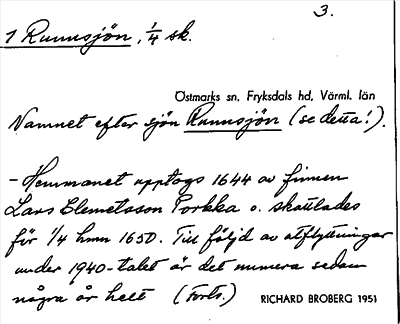 3.
1 Runnsjön, 1/4 sk.
Östmarks sn, Fryksdals hd, Värml. län
Namnet efter sjön Runnsjön (se detta!).
- Hemmanet upptogs 1644 av finnen
Lars Clemetsson Porkka o. skattlades
för 1/4 hmn 1650. Till följd av utflyttningar
under 1940-talet är det numera sedan
några år helt (Forts.)
RICHARD BROBERG 1951